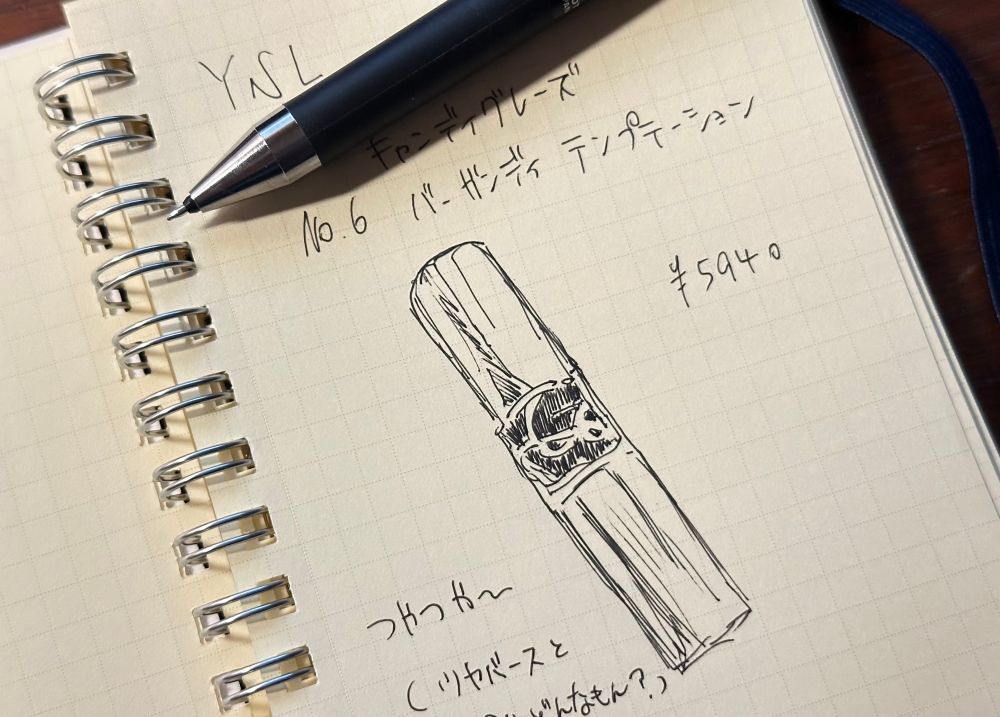 YSL
キャンディグレーズ
No.6 バーガンディ テンプテーション
¥5940
つやつや〜
(ツヤバースと
どんなもん?)